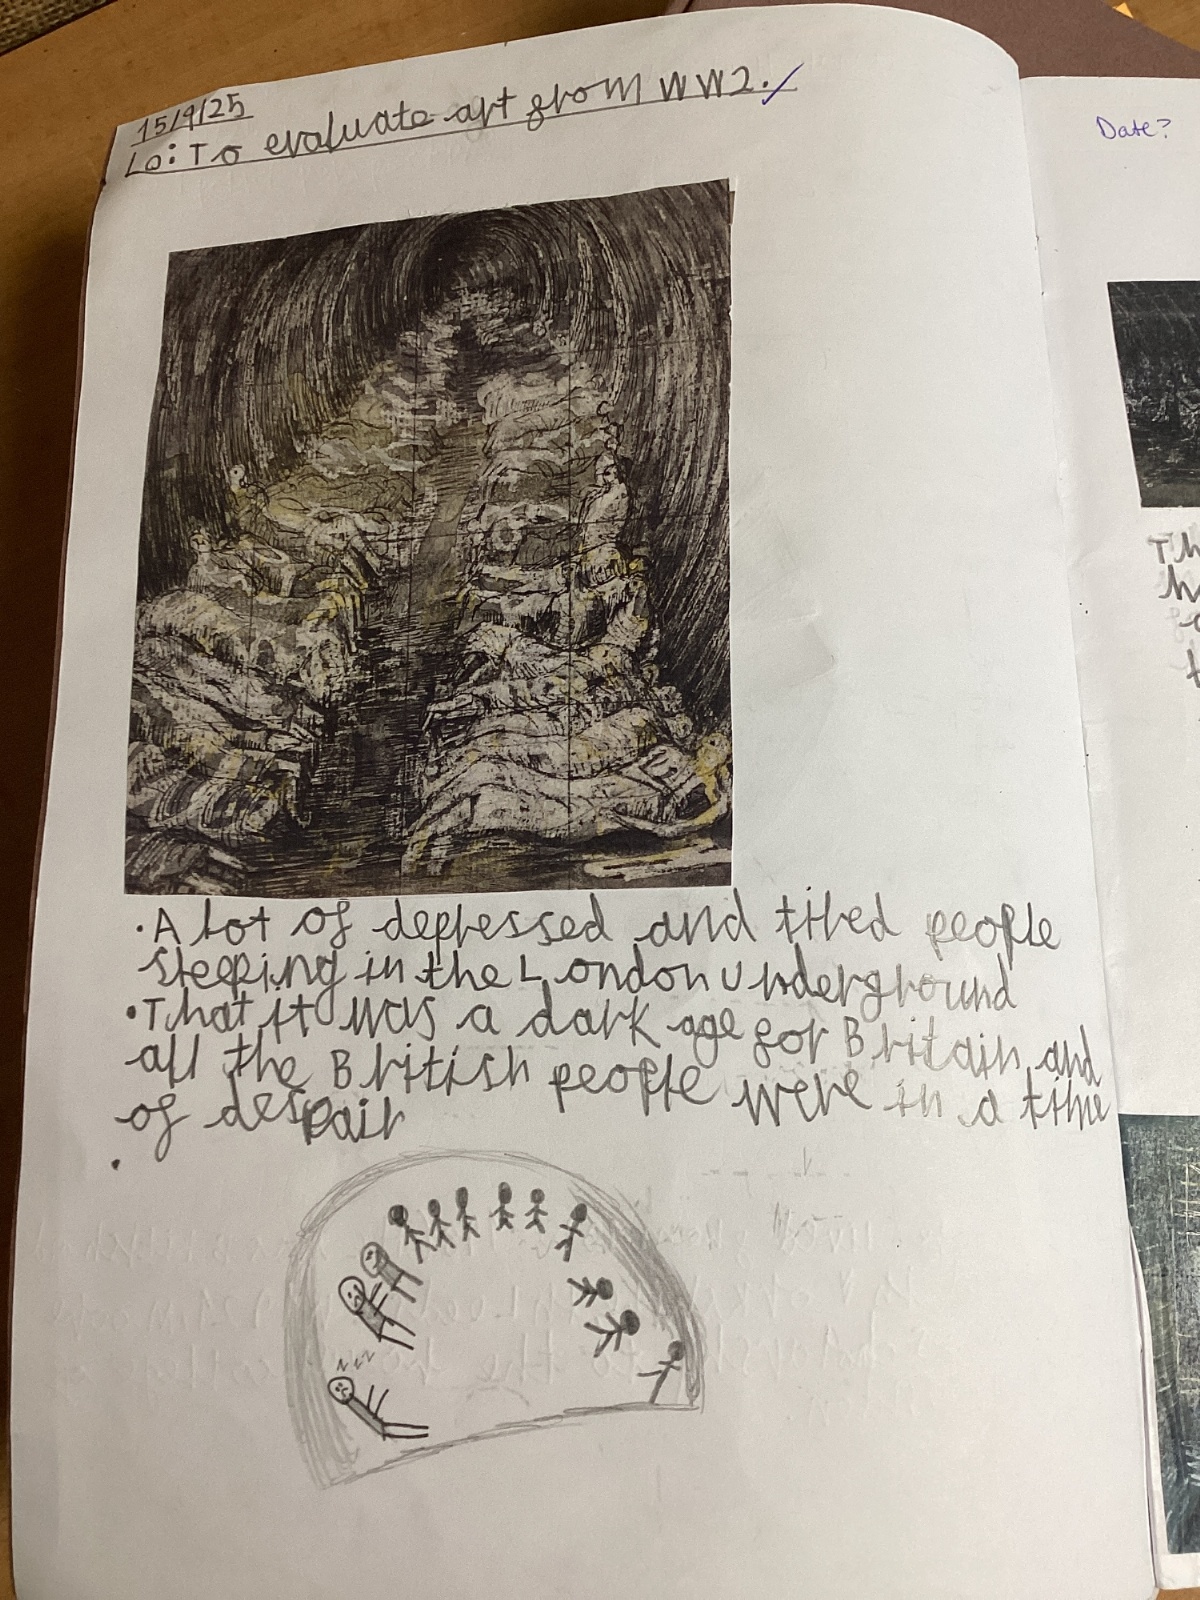 15/9/25
Lo: To evaluate art from WW2.
Date?
• A lot of depressed and tired people
sleeping in the London Underground
• That it was a dark age for Britain and
all the British people were in a time
of despair
•
zzz
Th
h
t